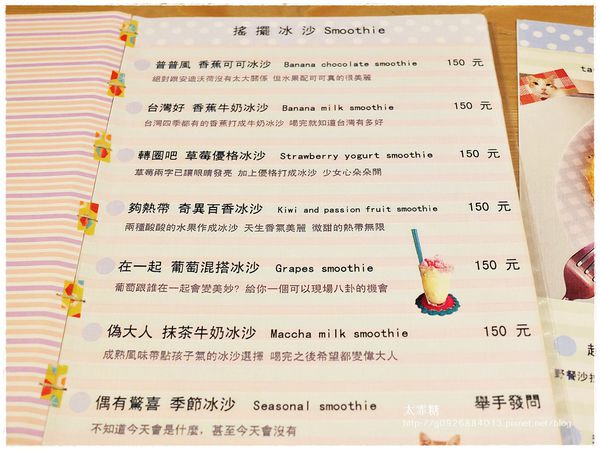 搖擺冰沙 Smoothie
普普風 香蕉可可冰沙 Banana chocolate smoothie 150 元
絕對跟安迪沃荷沒有太大關係 但水果配可可真的很美麗
台灣好 香蕉牛奶冰沙 Banana milk smoothie 150 元
台灣四季都有的香蕉打成牛奶冰沙 喝完就知道台灣有多好
轉圈吧 草莓優格冰沙 Strawberry yogurt smoothie 150 元
草莓兩字已讓眼睛發亮 加上優格打成冰沙 少女心朵朵開
夠熱帶 奇異百香冰沙 Kiwi and passion fruit smoothie 150 元
兩種酸酸的水果作成冰沙 天生香氣美麗 微甜的熱帶無限
在一起 葡萄混搭冰沙 Grapes smoothie 150 元
葡萄跟誰在一起會變美妙? 給你一個可以現場八卦的機會
偽大人 抹茶牛奶冰沙 Maccha milk smoothie 150 元
成熟風味帶點孩子氣的冰沙選擇 喝完之後希望都變偉大人
偶有驚喜 季節冰沙 Seasonal smoothie 舉手發問
不知道今天會是什麼，甚至今天會沒有
ta
野餐沙拉
太乖糖
http://g0926884013.pixnet.net/blog